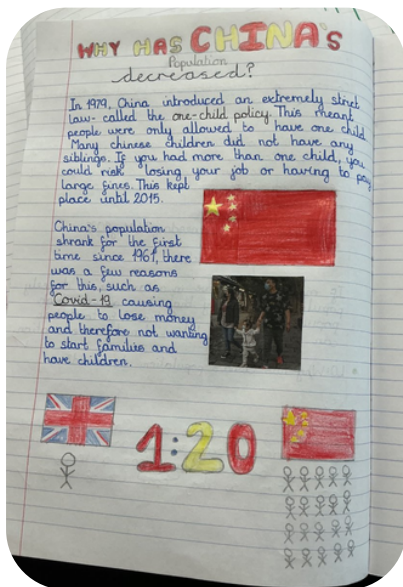 WHY HAS CHINA'S
Population
decreased?
In 1979, China introduced an extremely strict
law- called the one-child policy. This meant
people were only allowed to have one child
Many chinese children did not have any
siblings. If you had more than one child, you
could risk losing your job or having to pay
large fines. This kept
place until 2015.
China's population
shrank for the first
time since 1961, there
was a few reasons
for this, such as
Covid-19 causing
people to lose money
and therefore not wanting
to start families and
have children.
1:20